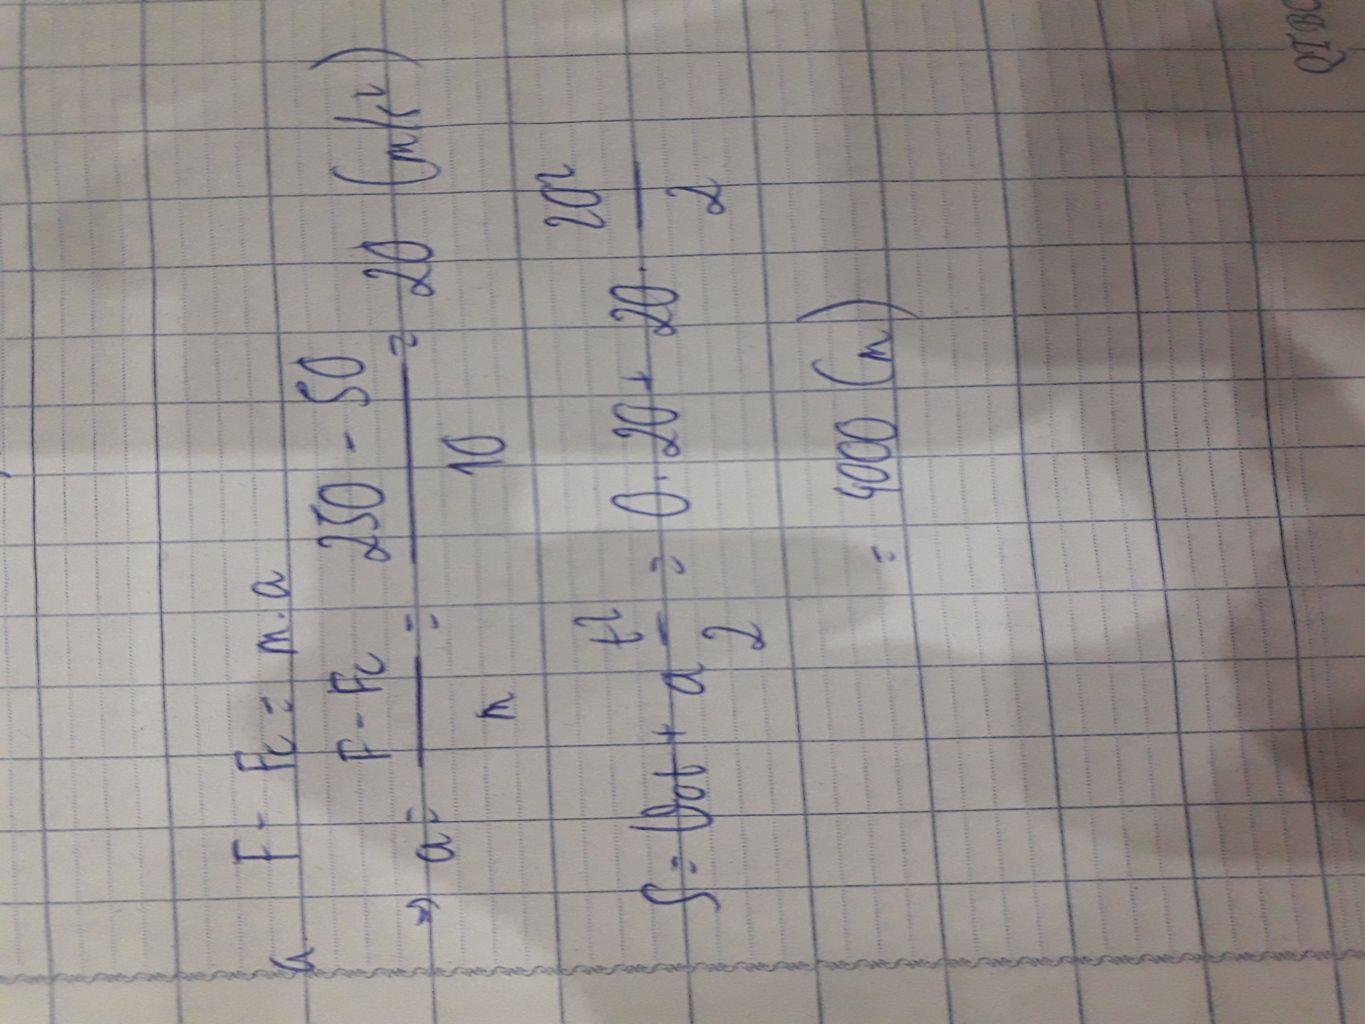 a F - Fc = m.a
=> a = (F - Fc) / m = (250 - 50) / 10 = 20 (m/s²)
S = Vot + a t²/2 = 0.20 + 20. 20²/2
= 4000 (m)